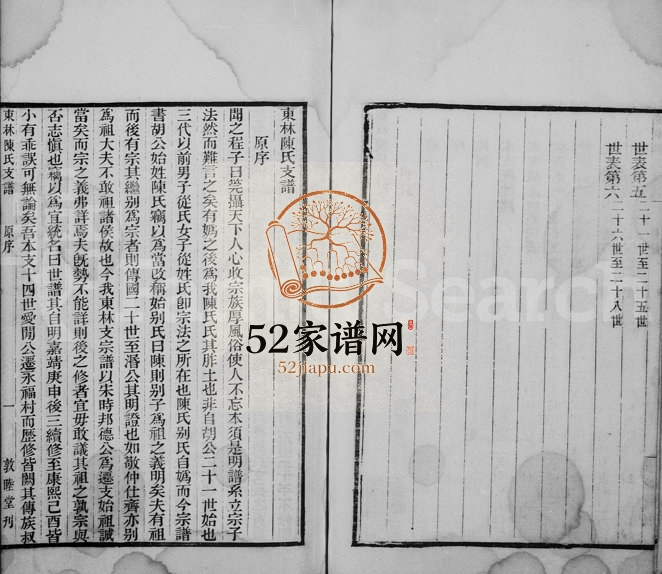 世表第五 二十一世至二十五世
世表第六 二十六世至二十八世
東林陳氏支譜
原序
聞之程子曰筦攝天下人心收宗族厚風俗使人不忘本須是明譜系立宗子
法然而難言之矣有媯之後爲我陳氏氏其胙土也非自胡公二十一世始也
三代以前男子從氏女子從姓氏卽宗法之所在也陳氏別氏自媯而今宗譜
書胡公始姓陳氏竊以爲當改稱始別氏曰陳則別子爲祖之義明矣夫有祖
而後有宗其繼別爲宗者則傳國二十世至湣公其明證也如敬仲仕齊亦別
爲祖大夫不敢祖諸侯故也今我東林支宗譜以宋時邦德公爲遷支始祖誠
當矣而宗之義弗詳焉夫旣勢不能詳則後之修者宜毋敢議其祖之孰宗與
否志愼也竊以爲宜統名曰世譜其自明嘉靖庚申後三續修至康熙己酉皆
小有乖誤可無論矣吾本支十四世愛閒公遷永福村而歷修皆闕其傳族叔
東林陳氏支譜
原序
一
敦睦堂刋
52家谱网
52jiapu.com
Search